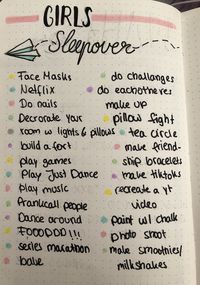 GIRLS
Sleepover
Face Masks
Netflix
Do nails
Decrorate your
room w lights & pillows
build a fort
play games
Play Just Dance
Play music
Prankcall people
Dance around
FOOODDD!!!
series marathon
bake
do challanges
do eachothers
make up
pillow fight
tea circle
make friend-
ship bracelets
make tiktoks
recreate a yt
video
paint w/ chalk
photo shoot
make smoothies/
milkshakes